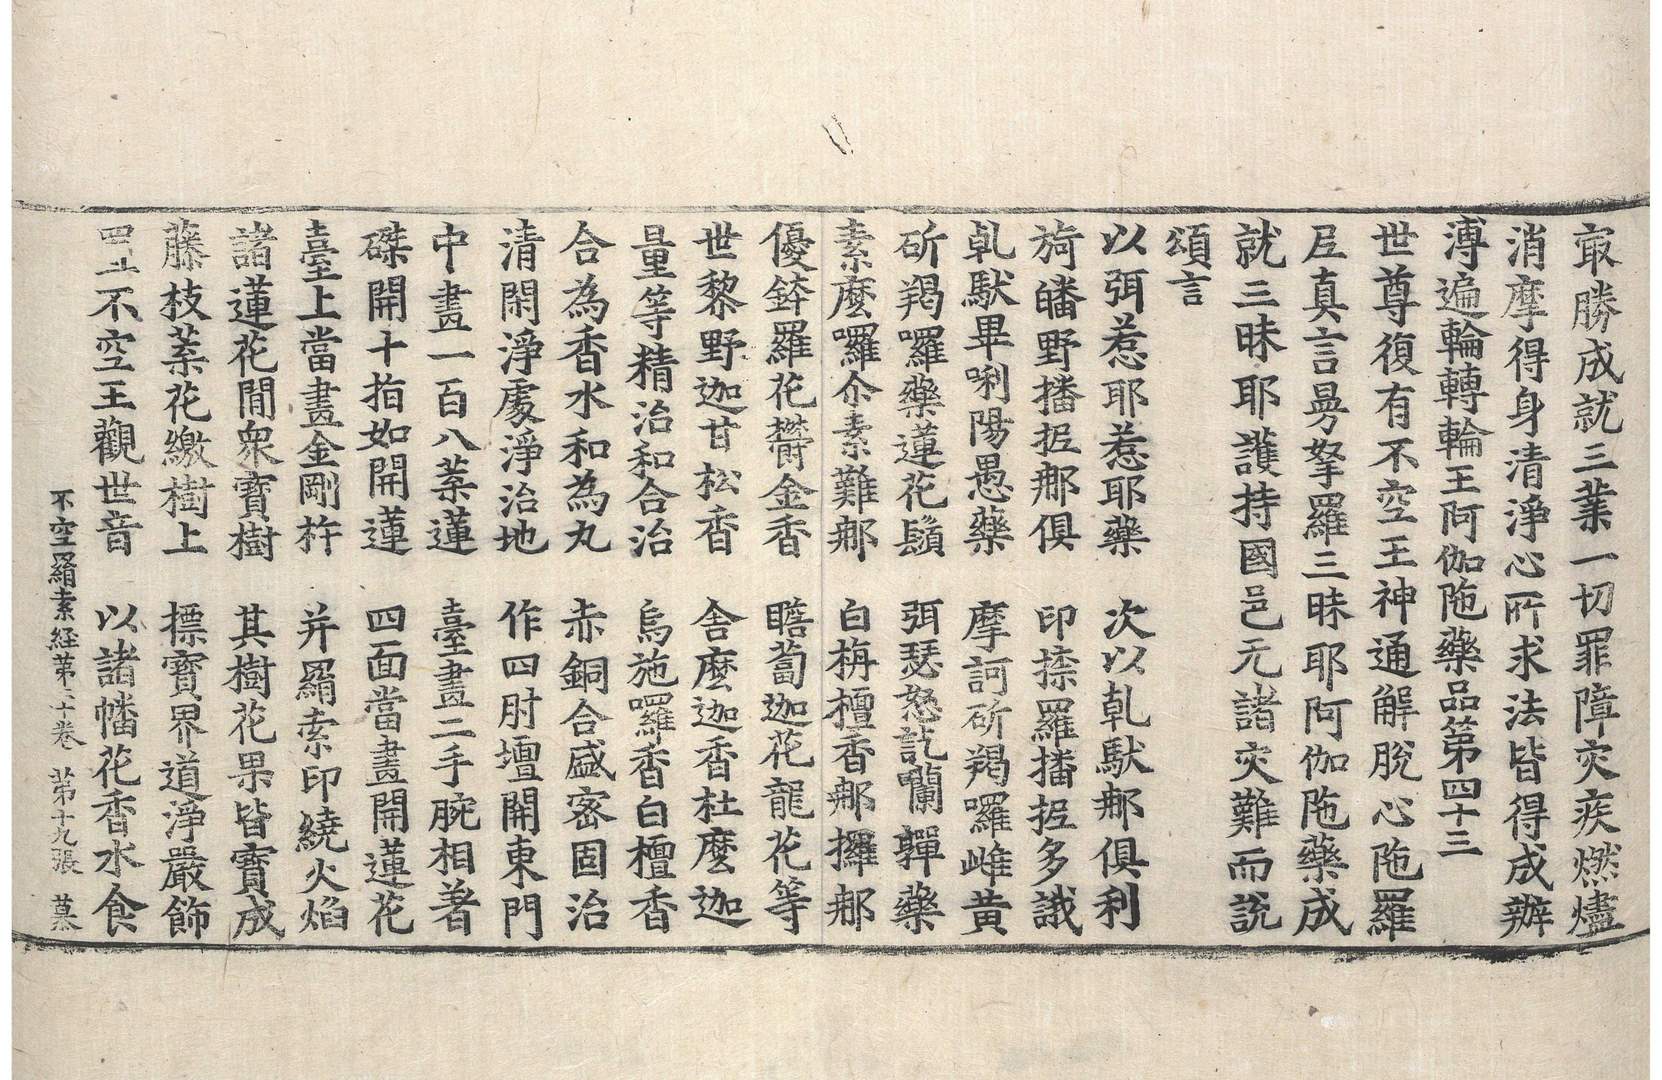 冣勝成就三業一切罪障灾疾燃燼
消摩得身清淨心所求法皆得成辦
溥遍輪轉輪王阿伽陁藥品第四十三
世尊復有不空王神通解脫心陁羅
尼真言曼拏羅三昧耶阿伽陁藥成
就三昧耶護持國邑元諸灾難而說
頌言
以弭惹耶惹耶藥　次以乹馱㖠俱利
旖皤野播抳㖠俱　印捺羅播抳多識
乹馱畢唎陽愚藥　摩訶斫羯囉雌黃
斫羯囉藥蓮花鬚　弭瑟怒訖囒嚲藥
素麼囉尒素難㖠　白栴檀香㖠攞㖠
優鉢羅花欝金香　瞻蔔迦花龍花等
世黎野迦甘松香　舍麼迦香杜麼迦
量等精治和合治　烏施囉香白檀香
合為香水和為丸　赤銅合盛密固治
清閑淨處淨治地　作四肘壇開東門
中畫一百八葉蓮　臺畫二手腕相著
磔開十指如開蓮　四面當畫開蓮花
臺上當畫金剛杵　并羂索印繞火焰
諸蓮花間衆寶樹　其樹花果皆寶成
藤枝葉花繳樹上　標寶界道淨嚴飾
置不空王觀世音　以諸幡花香水食
不空羂索経第二十卷　第十九張　墓